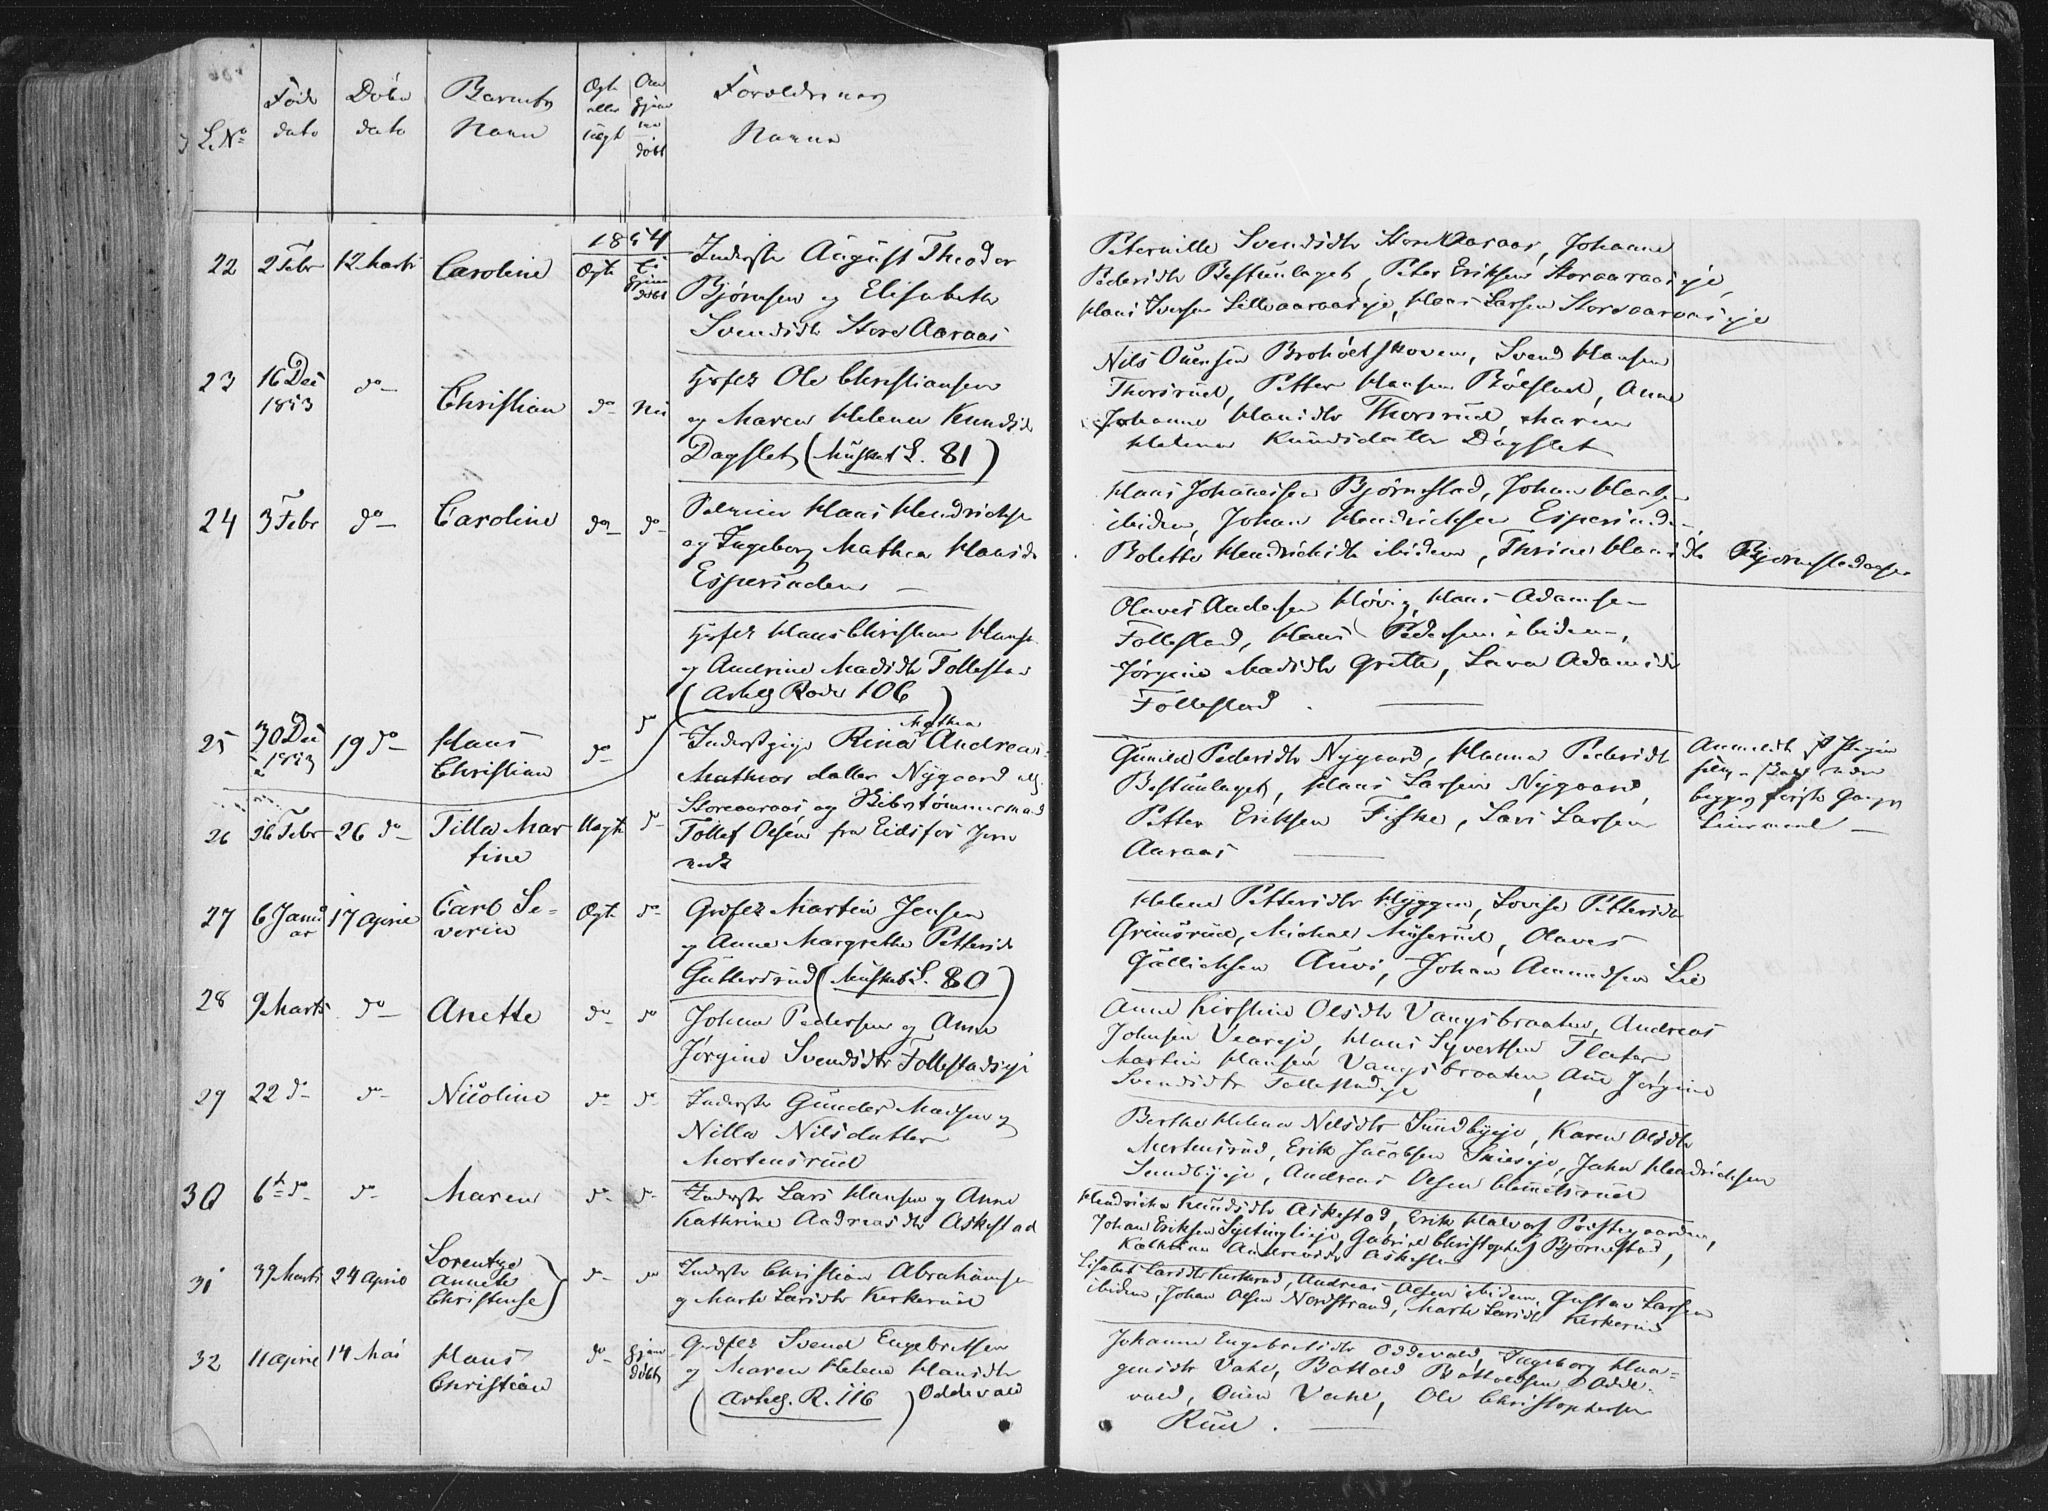 L. No
Føds
dato
Døbs
dato
Barnets
Navn
Ægt
eller
uægt
Om
hjem
me
døbt
Forældrenes
Navne
1854
22 2 Febr 12 Marts Caroline Ægte
Inderste August Theodor
Bjørnsen og Elisabeth
Svendsdtr Store Aaraas
Peternille Svendsdtr Store Aaraas, Johanne
Pedersdtr Bestumlaget, Peter Eriksen Storaaraaseje,
Hans Iversen Lilleaaraaseje, Hans Larsen Storeaaraaseje
23 16 Dec
1853
do Christian do Nei
Ole Christiansen
og Maren Helene Knudsd
Dagslet (Musket L. 81)
Nils Olensen Broholtskoven, Svend Hansen
Thorsrud, Petter Hansen Bølstad, Anne
Johanne Hansdtr Thorsrud, Maren
Helene Knudsdatter Dagslet
24 3 Febr do Caroline do do
Hans Hendrichs
og Ingeborg Mathea Hansd
Espedunden
Hans Johannesen Bjørnstad, Johan
ibidem, Johan Hendrichsen
Bolette Hendrichsdtr ibidem, Thrine Hansdtr Bjørnstadaasen
Hans Christian Hans
og Andrine Madsdtr Follestad
(Arbeg Rode 106)
Olaves Andersen Høvig, Hans Adamsen
Follestad, Hans Pedersen ibidem,
Jørgine Madsdtr Grette, Lava Adamsdtr
Follestad.
25 30 Dec
1853
19 do Hans
Christian
do do
26 26 Febr 26 do Tilla Mar
tine
Uægte do
Inderstpige Rina Mathea Andrea
Mathias datter Nygaard
Storeaaraas og
Tollef Olsen fra Eidsfos Jern
værk
Gunild Pedersdtr Nygaard, Hanna Pedersdtr
Bestumlaget, Hans Larsen Nygaard,
Petter Eriksen Fiske, Lars Larsen
Aaraas
begges første Gangs
Leiermaal
27 6 Janu
ar
17 April Carl Se-
verin
Ægte do
Martin Jensen
og Anne Margrethe Pettersd
Guttersrud (Musket L. 80)
Helene Pettersdtr Hyggen, Lovise Pettersdtr
Grimsrud, Michael Muserud, Olaves
Gullichsen Auvi, Johan Amundsen Lie
28 9 Marts do Anette do do
Johan Pedersen og Anne
Jørgine Svendsdtr Follestadeje
Anne Kirstine Olsdtr Vangsbraaten, Andreas
Johnsen Veareje, Hans Syvertsen Flater
Martin Hansen Vangsbraaten, Ane Jørgine
Svendsdtr Follestadeje
29 22 do do Nicoline do do
Inderste Gunder Madsen og
Nille Nilsdatter
Mortensrud
Berthe Helene Nelsdtr Sundbyeje, Karen Olsdtr
Mortensrud, Erik Jacobsen Skieseje, John Hendrichsen
Sundbyeje, Andreas Olsen Clemetsrud
30 6te do do Maren do do
Inderste Lars Hansen og Anne
Kathrine Andreasdtr Askestad
Hendrikke Knudsdtr Askestad, Erik Halvors Præstegaarden,
Johan Eriksen Syltinglieje, Gabriel Christophers Bjørnstad,
Kathrine Andreasdtr Askestad
31 Marts 24 April Lorentze
Annette
Christense
do do
Inderste Christian Abrahamsen
og Marte Larsdtr Kerkerud
Lisabet Larsdtr Kerkerud, Andreas Olsen ibidem, Gustav Larsen
ibidem, Johan Olsen Nordstrand, Marte Larsdtr Kerkerud
32 11 April 14 Mai Hans
Christian
do hjem
døbt
Svend Engebretsen
og Maren Helene Hansdtr
(Arbeg. R. 116) Oddevald
Johanne Engebretsdtr Oddevald, Ingeborg Haa-
gensdtr Vahl, Bottolf Bottolfsen Odde-
vald, Ouen Vahl, Ole Christophersen
Ruud.